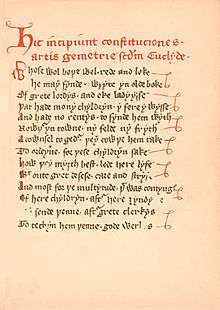 Hic incipiunt constituciones
artis gemetrie scdm Euclyde
Whose wol boþe wel rede and loke
he may fynde wryte yn olde boke
Of grete lordys and eke ladyysse
Þat hade mony chyldryn y fere y wisse
And hade no rentys to fynde hem wyth
Nowþer yn towne ny felde ny fryth
A cownsel togedr þey cowþe hem take
To ordeyne for þese chyldryn sake
How þey myȝth best lede here lyfe
Wtoute gret desese care and stryf
And most for þe multytude þt was comyng
Of here chyldryn aftr here
sende þenne aftr grete clerkys
To techyn hem þenne gode werkys